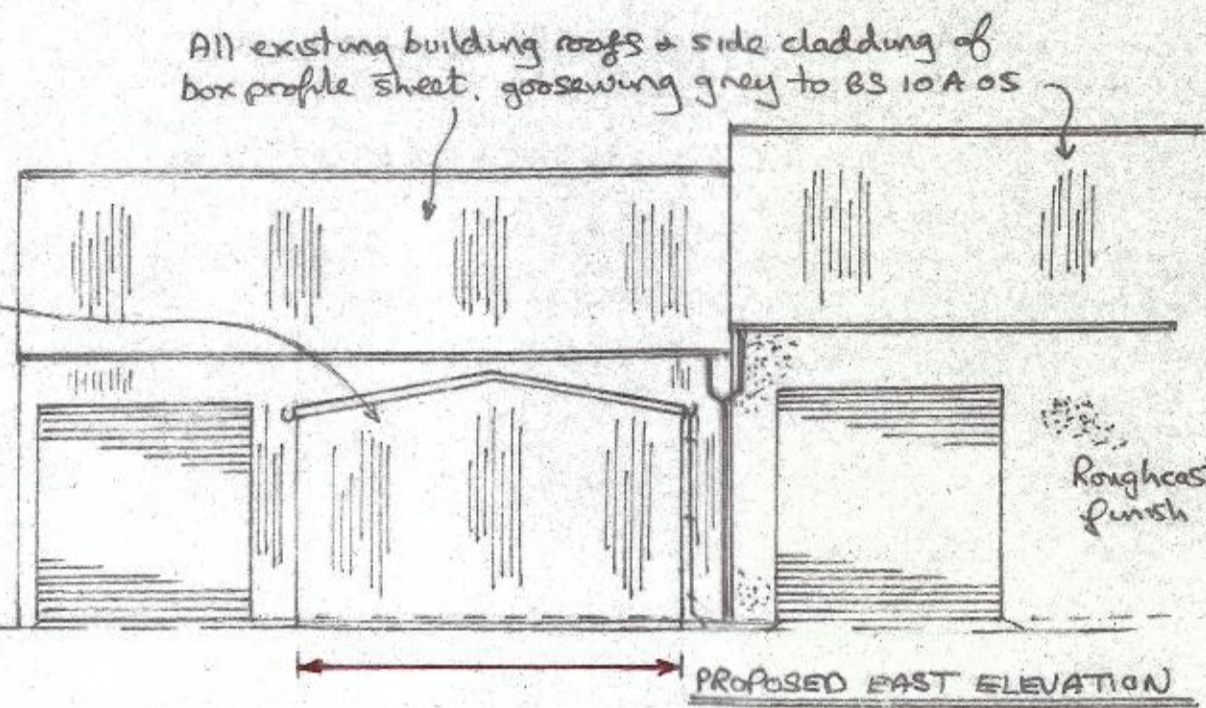 All existing building roofs & side cladding of
box profile sheet. goosewing grey to BS 10 A 05
Roughcast
finish
PROPOSED EAST ELEVATION